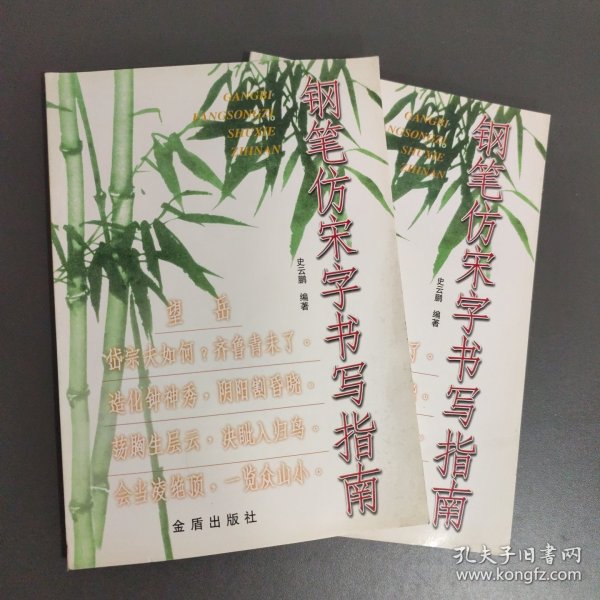 GANGBI
FANGSONGZI
SHUXIE
ZHINAN
钢笔仿宋字书写指南
史云鹏 编著
望岳
岱宗夫如何？齐鲁青未了。
造化钟神秀，阴阳割昏晓。
荡胸生层云，决眦入归鸟。
会当凌绝顶，一览众山小。
金盾出版社
GANGBI
NGSONGZI
SHUXIE
ZHINAN
钢笔仿宋字书写指南
史云鹏 编著
了。
孔夫子旧书网
www.kongfz.com